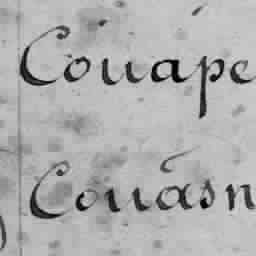 Couápe
Couāsn